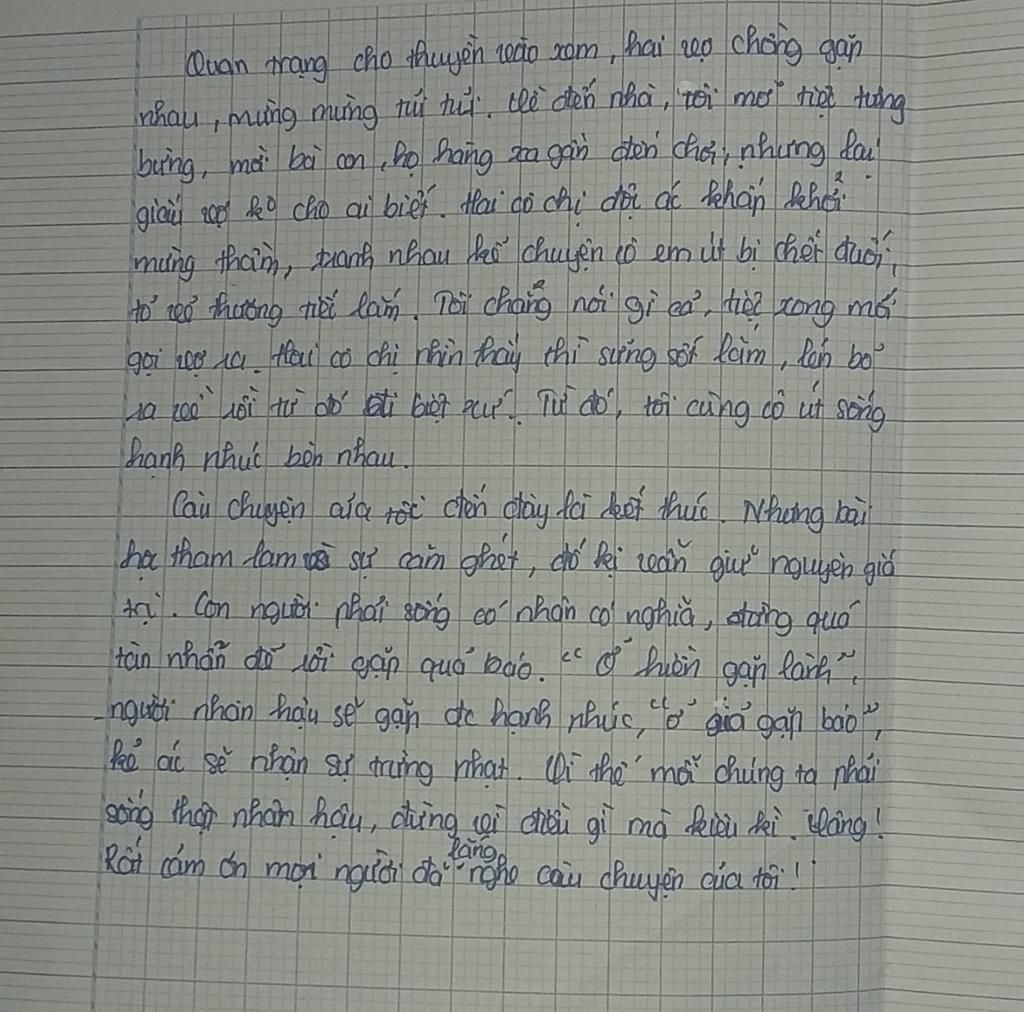 Quan trạng cho thuyền vào xem, hai vợ chồng gặp
nhau, mừng mừng tủi tủi. Về đến nhà, tôi mở tiệc tưng
bừng, mời bà con, họ hàng xa gần đến chơi, nhưng lại
giấu vợ ko cho ai biết. Hai cô chị độc ác khấp khởi
mừng thầm, tranh nhau kể chuyện cô em út bị chết đuối,
tỏ vẻ thương tiếc lắm. Tôi chẳng nói gì cả, tiệc xong mới
gọi vợ ra. Hai cô chị nhìn thấy thì sửng sốt lắm, lén bỏ
ra về rồi từ đó đi biệt xứ. Từ đó, tôi cùng cô út sống
hạnh phúc bên nhau.
Câu chuyện của tôi đến đây là kết thúc. Nhưng bài
học tham lam và sự căm ghét, đố kị vẫn giữ nguyên giá
trị. Con người phải sống có nhân có nghĩa, đừng quá
tàn nhẫn để rồi gặp quả báo. "Ở hiền gặp lành",
người nhân hậu sẽ gặp đc hạnh phúc, "ở giá gặp bão",
kẻ ác sẽ nhận sự trừng phạt. Vì thế mỗi chúng ta phải
sống thật nhân hậu, đừng vì điều gì mà
Rất cảm ơn mọi người đã lắng nghe câu chuyện của tôi!